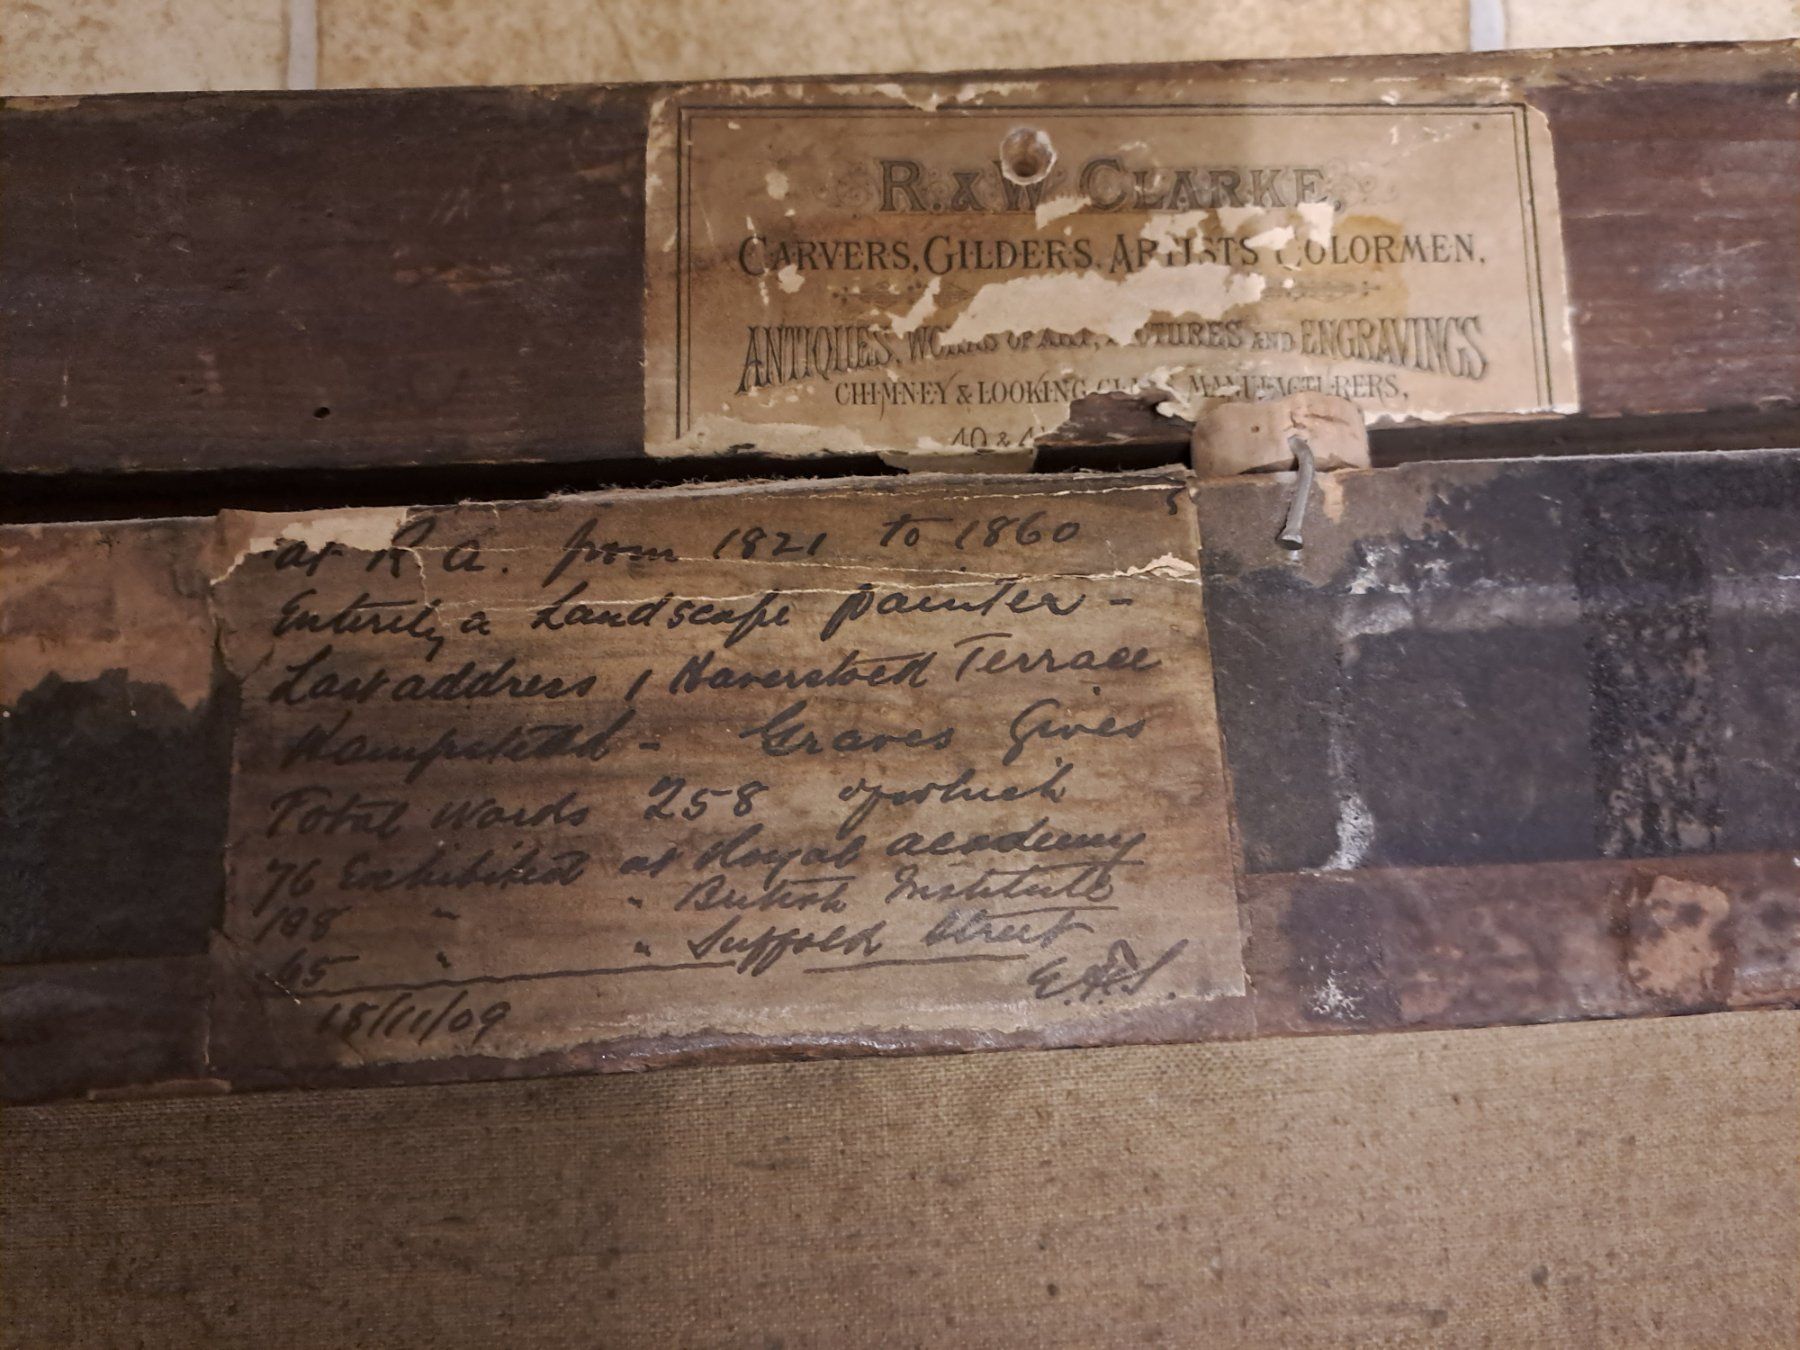 R. & W CLARKE,
CARVERS, GILDERS, ARTISTS COLORMEN,
ANTIQUES, WORKS OF ART, PICTURES AND ENGRAVINGS
CHIMNEY & LOOKING GLASS MANUFACTURERS,
40 &
at R A. from 1821 to 1860
Entirely a Landscape painter -
Last address 1 Haverstock Terrace
Hampstead - Graves Gives
Total Works 258 of which
76 Exhibited at Royal academy
108 " " British Institute
65 " " Suffolk Street
18/11/09